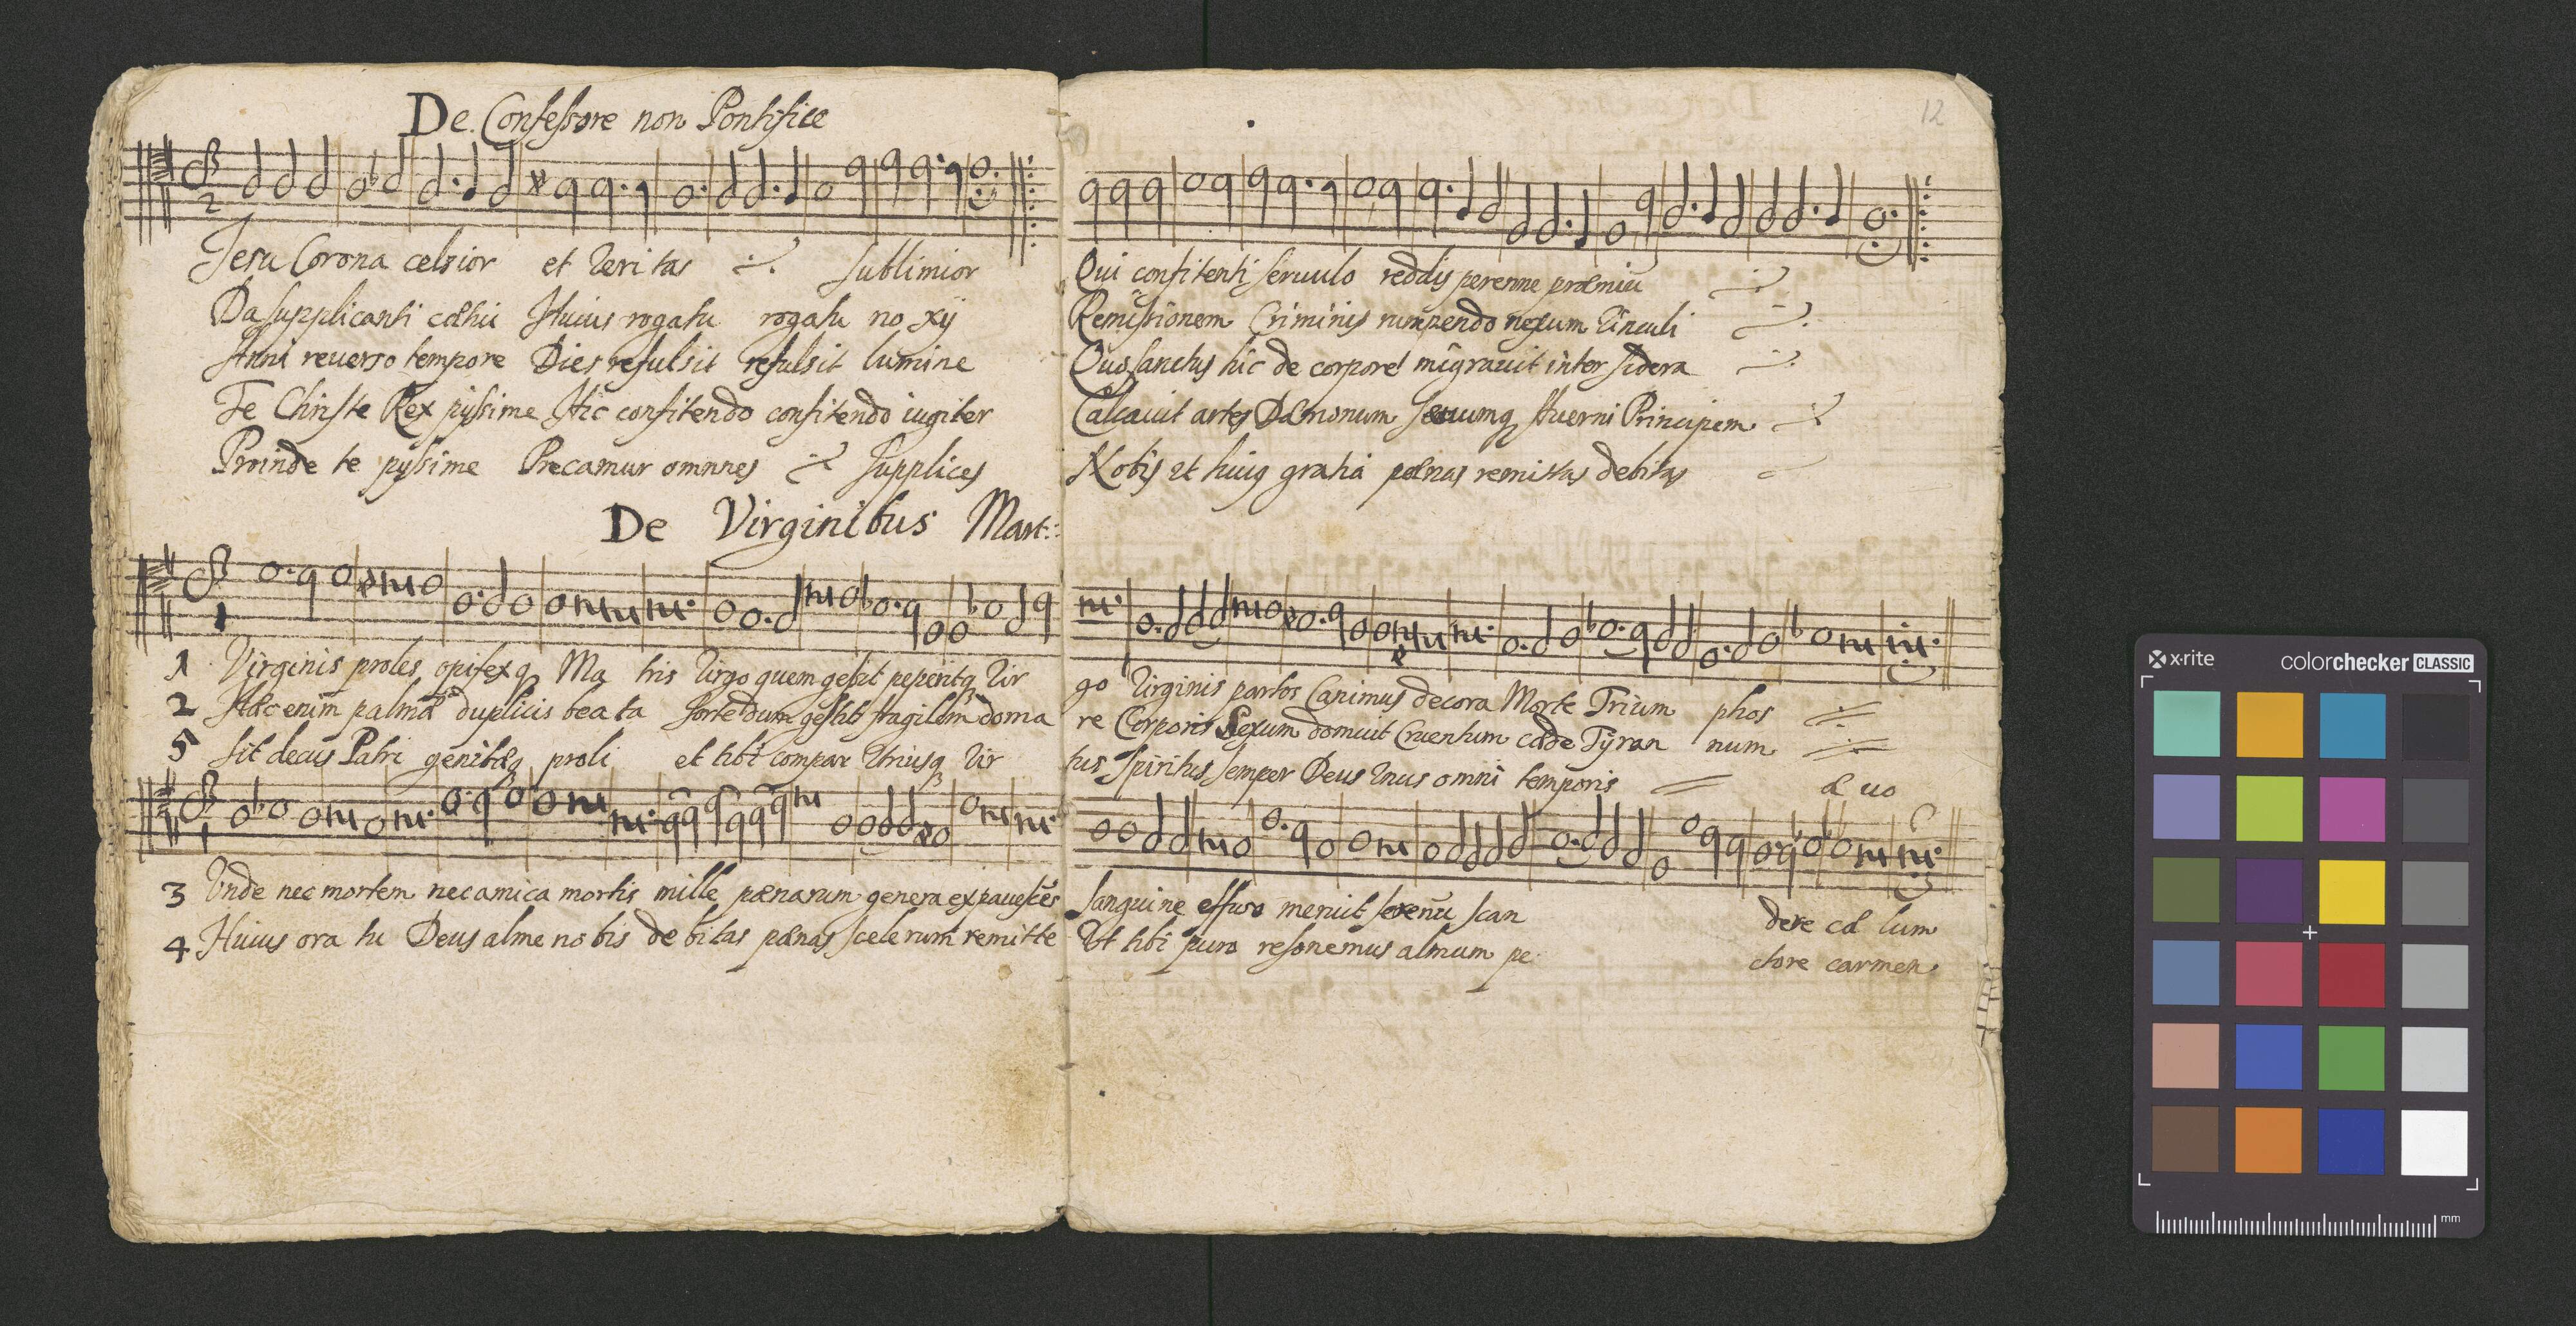 De Confessore non Pontifice
2
Jesu Corona celsior et veritas sublimior
Da supplicanti cætui Huius rogatu rogatu noxÿ
Anni reuerso tempore Dies refulsit refulsit lumine
Te Christe Rex pÿssime Hic confitendo confitendo iugiter
Proinde te pÿssime Precamur omnnes supplices
De Virginibus Mart:
1
1 Virginis proles opifexq Matris Virgo quem gessit peperitq Vir
2 Hæc enim palmæ duplicis beata sorte dum gestit fragilem doma
5 Sit decus Patri genitæq proli et tibi compar Vtriusq Vir
1
3 Vnde nec mortem nec amica mortis mille pænarum genera expauescēs
4 Huius oratu Deus alme nobis debitas pænas scelerum remitte
12
Qui confitenti seruulo reddis perenne præmiū
Remissionem Criminis rumpendo nexum Vinculi
Quo sanctus hic de corpore migrauit inter sidera
Calcauit artes Dæmonum sæuumq Auerni Principem
Nobis et huiq gratia pænas remittas debitas
go Virginis partos Canimus decora Morte Trium phos
re Corporis Sexum domuit Cruentum cæde Tÿran num
tus Spiritus semper Deus Vnus omni temporis æ uo
Sanguine effuso meruit serenū scan dere cæ lum
Vt tibi puro resonemus almum pe ctore carmen
x·rite colorchecker CLASSIC
mm